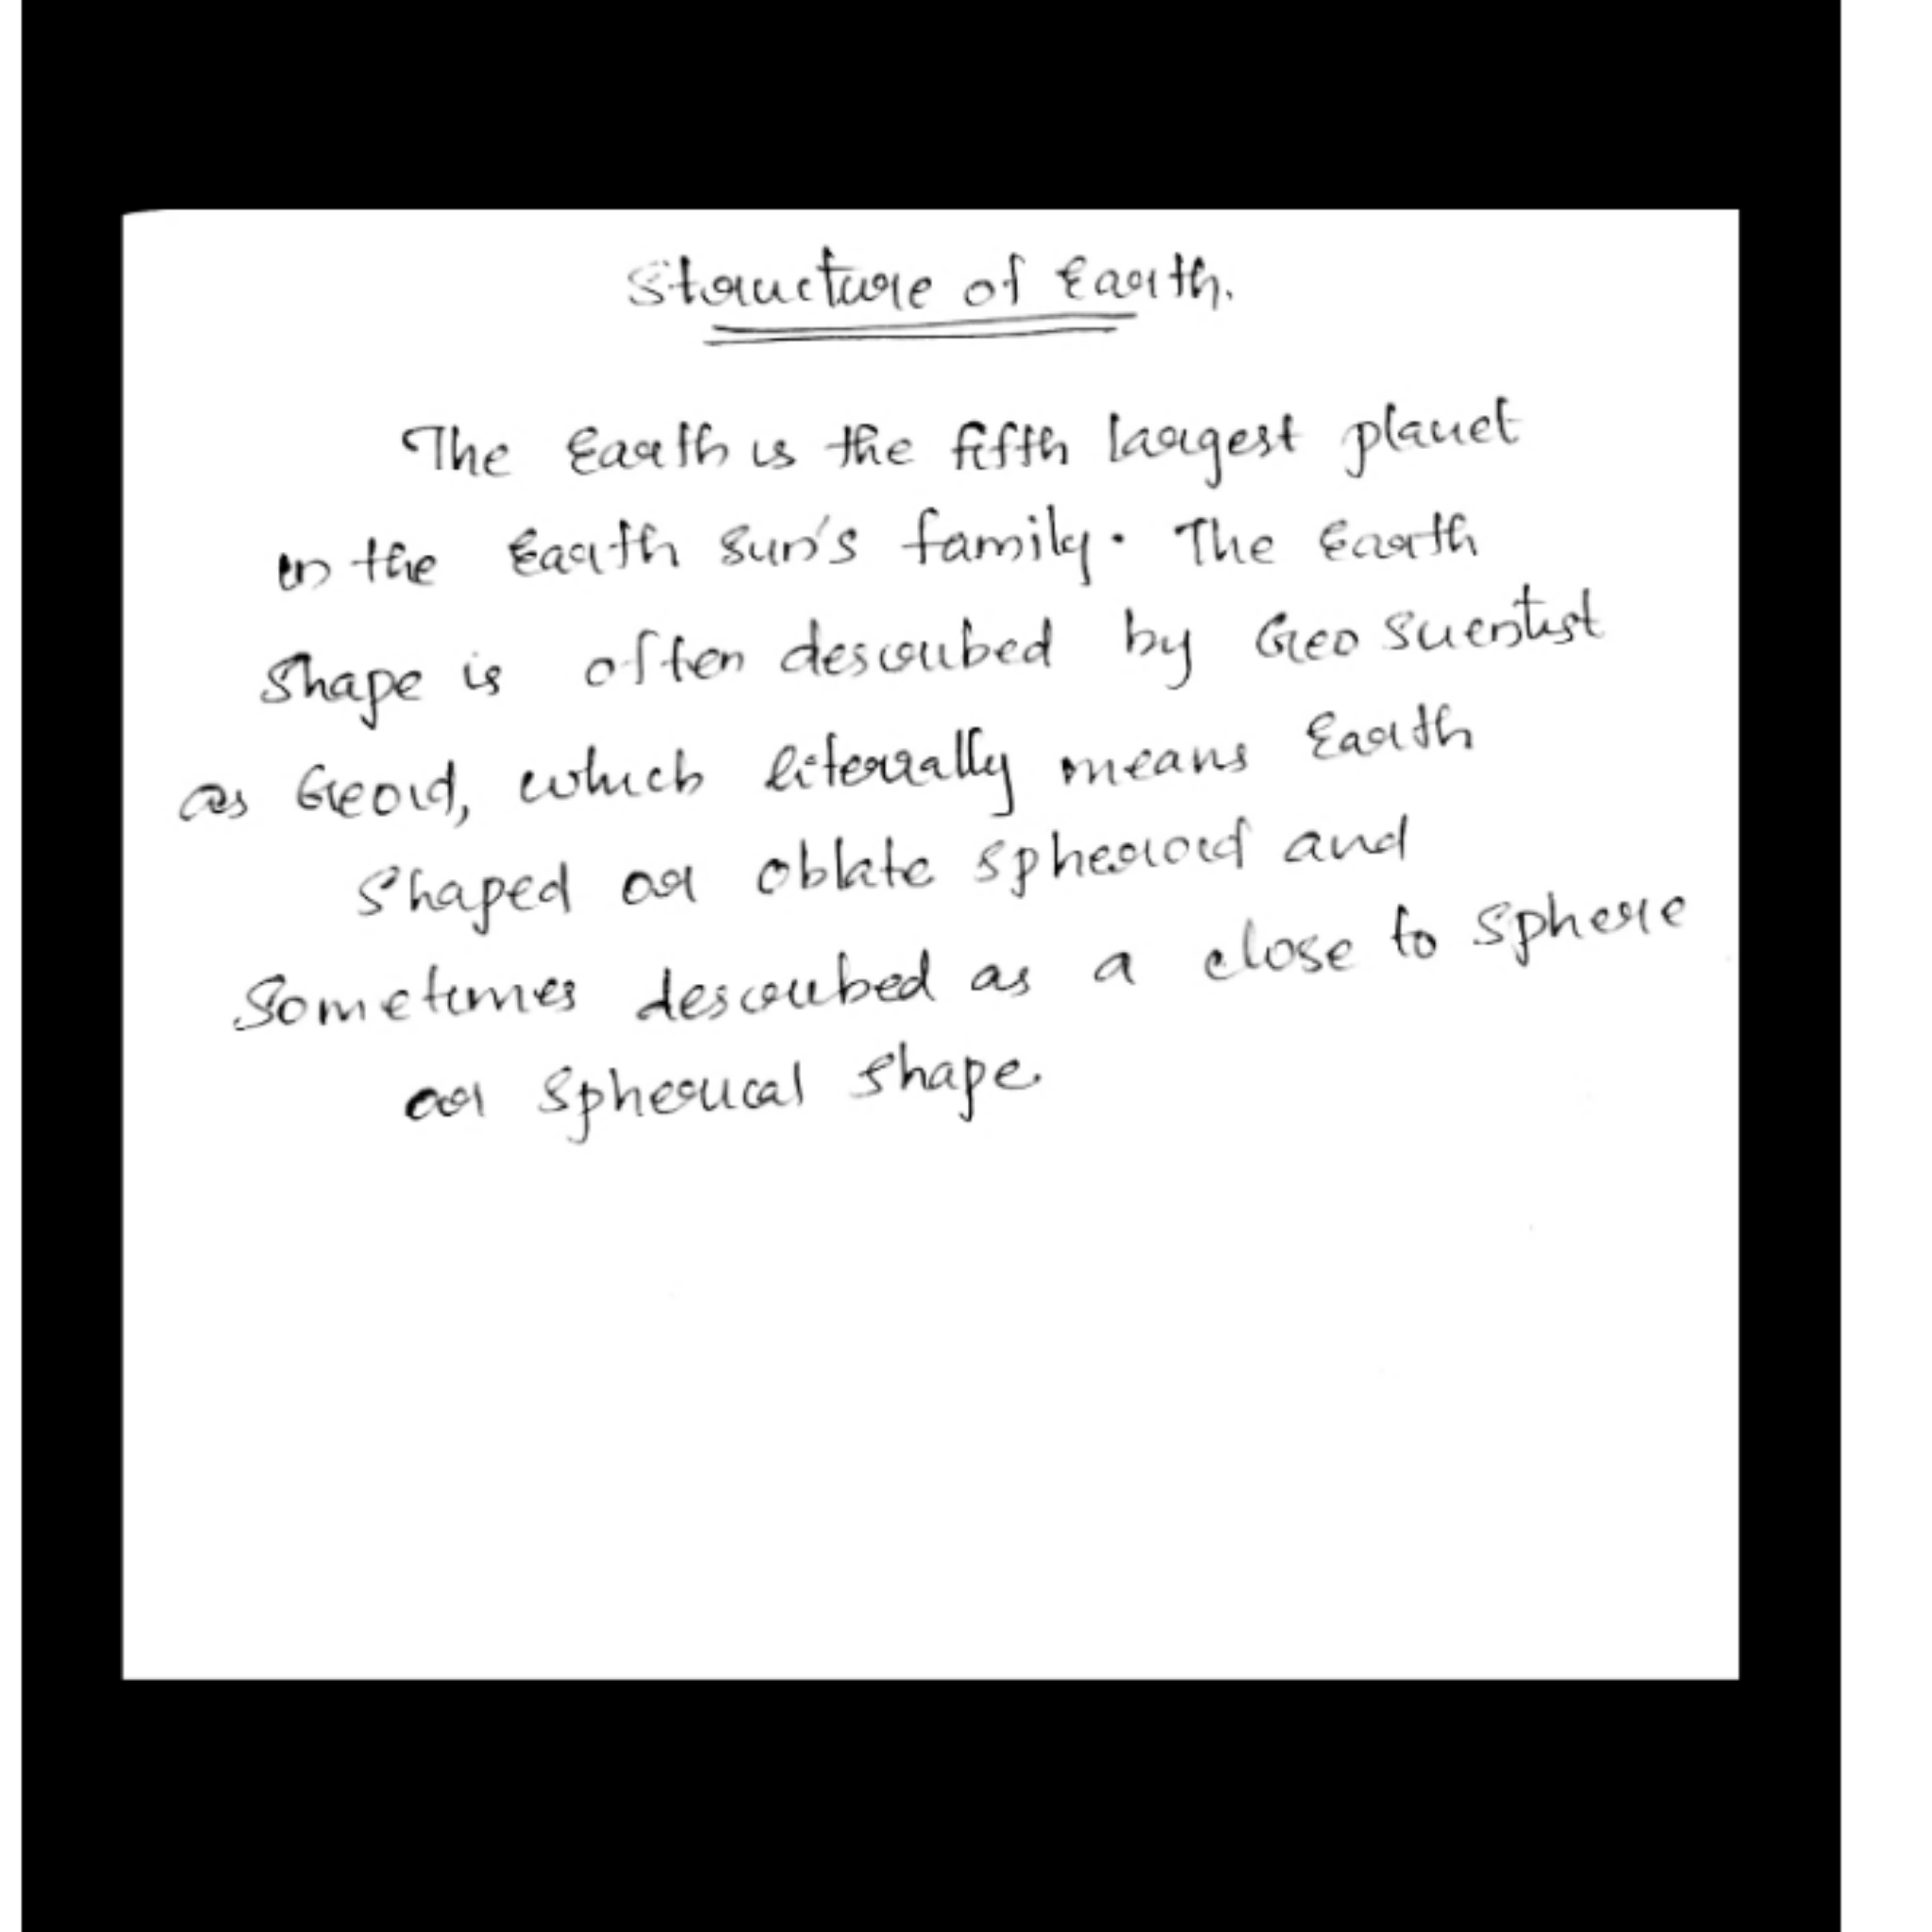 Structure of Earth.
The Earth is the fifth largest planet
in the Earth Sun's family. The Earth
Shape is often described by Geo Scientist
as Geoid, which literally means Earth
Shaped or oblate spheroid and
Sometimes described as a close to Sphere
or Spherical shape.